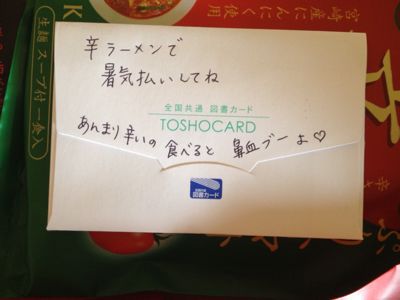 宮崎産にんにく使用
生麺 スープ付 一食入
辛ラーメンで
暑気払いしてね
全国共通 図書カード
TOSHOCARD
あんまり辛いの食べると 鼻血ブーよ♡
図書カード
辛